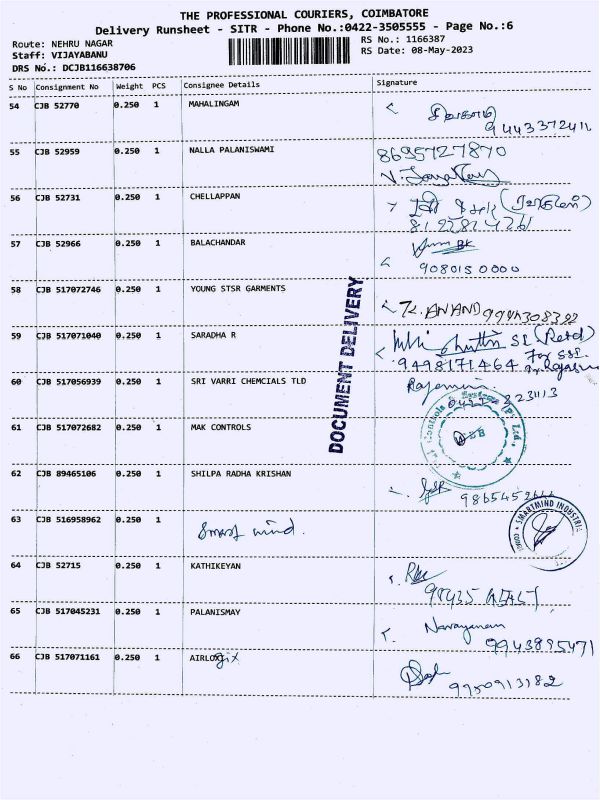 THE PROFESSIONAL COURIERS, COIMBATORE
Delivery Runsheet - SITR - Phone No.:0422-3505555 - Page No.:6
Route: NEHRU NAGAR
Staff: VIJAYABANU
DRS No.: DCJB116638706
RS No.: 1166387
RS Date: 08-May-2023
S No Consignment No Weight PCS Consignee Details Signature
54 CJB 52770 0.250 1 MAHALINGAM
9443372411
55 CJB 52959 0.250 1 NALLA PALANISWAMI 8695727870
56 CJB 52731 0.250 1 CHELLAPPAN
57 CJB 52966 0.250 1 BALACHANDAR
9080150000
58 CJB 517072746 0.250 1 YOUNG STSR GARMENTS
ANAND 9944308392
59 CJB 517071040 0.250 1 SARADHA R
SI (Retd)
9498171464 For SSI
60 CJB 517056939 0.250 1 SRI VARRI CHEMCIALS TLD
61 CJB 517072682 0.250 1 MAK CONTROLS
62 CJB 89465106 0.250 1 SHILPA RADHA KRISHAN
63 CJB 516958962 0.250 1 Smart mind.
SMARTMIND INDUSTRI
64 CJB 52715 0.250 1 KATHIKEYAN
65 CJB 517045231 0.250 1 PALANISMAY
Narayanan
9943895471
66 CJB 517071161 0.250 1 AIRLOgix
9950913182
DOCUMENT DELIVERY